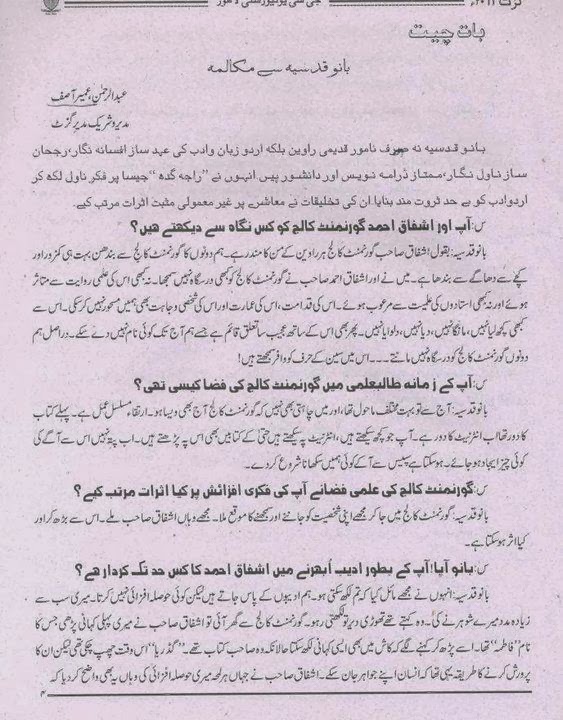 گزٹ ۲۰۱۱ء
جی سی یونیورسٹی لاہور
بات چیت
بانو قدسیہ سے مکالمہ
عبدالرحمٰن، عمیر آصف
مدیر و شریک مدیر گزٹ
بانو قدسیہ نہ صرف نامور قدیمی راوین بلکہ اردو زبان وادب کی عہد ساز افسانہ نگار، رجحان
ساز ناول نگار، ممتاز ڈرامہ نویس اور دانشور ہیں انہوں نے "راجہ گدھ" جیسا پر فکر ناول لکھ کر
اردو ادب کو بے حد ثروت مند بنایا۔ ان کی تخلیقات نے معاشرے پر غیر معمولی مثبت اثرات مرتب کیے۔
س: آپ اور اشفاق احمد گورنمنٹ کالج کو کس نگاہ سے دیکھتے ہیں؟
بانو قدسیہ: بقول اشفاق صاحب گورنمنٹ کالج ہر راوین کے من کا مندر ہے۔ ہم دونوں کا گورنمنٹ کالج سے بندھن بہت ہی کمزور اور
کچے سے دھاگے سے بندھا ہے۔ میں نے اور اشفاق احمد صاحب نے گورنمنٹ کالج کو کبھی درسگاہ نہیں سمجھا۔ نہ کبھی اس کی علمی روایت سے متاثر
ہوئے اور نہ کبھی استادوں کی علمیت سے مرعوب ہوئے۔ اس کی قدامت، اس کی عمارت اور اس کی شخصی وجاہت بھی ہمیں مسحور نہیں کر سکی۔ اس سے
کبھی کچھ لیا نہیں، مانگا نہیں، دیا نہیں، دلوایا نہیں۔ پھر بھی اس کے ساتھ عجیب سا تعلق قائم ہے جسے ہم آج تک کوئی نام نہیں دے سکے۔ دراصل ہم
دونوں گورنمنٹ کالج کو درسگاہ نہیں مانتے۔۔۔ اس میں سین کے حرف کو وافر سمجھتے ہیں!
س: آپ کے زمانہ طالبعلمی میں گورنمنٹ کالج کی فضا کیسی تھی؟
بانو قدسیہ: آج سے تو بہت مختلف ماحول تھا، اور میں چاہتی بھی نہیں کہ گورنمنٹ کالج آج بھی ویسا ہو۔ ارتقاء مسلسل عمل ہے۔ پہلے کتاب
کا دور تھا اب انٹرنیٹ کا دور ہے۔ آپ جو کچھ سیکھتے ہیں، انٹرنیٹ پہ سیکھتے ہیں حتیٰ کے کتابیں بھی اس پہ پڑھتے ہیں۔ اب پتہ نہیں اس سے آگے کی
کوئی چیز ایجاد ہو جائے۔ ہو سکتا ہے سپیس سے آ کے کوئی ہمیں سکھانا شروع کر دے۔
س: گورنمنٹ کالج کی علمی فضا نے آپ کی فکری افزائش پر کیا اثرات مرتب کیے؟
بانو قدسیہ: گورنمنٹ کالج میں جا کر مجھے اپنی شخصیت کو جاننے اور سمجھنے کا موقع ملا۔ مجھے وہاں اشفاق صاحب ملے۔ اس سے بڑھ کر اور
کیا اثر ہو سکتا ہے۔
س: بانو آپا! آپ کے بطور ادیب اُبھرنے میں اشفاق احمد کا کس حد تک کردار ہے؟
بانو قدسیہ: انہوں نے مجھے مائل کیا کہ تم لکھ سکتی ہو۔ ہم ادیبوں کے پاس جاتے ہیں لیکن کوئی حوصلہ افزائی نہیں کرتا۔ میری سب سے
زیادہ مدد میرے شوہر نے کی۔ وہ کہتے تھے تھوڑی دیر تو لکھتی رہو۔ گورنمنٹ کالج سے گھر آئی تو اشفاق صاحب نے میری پہلی کہانی پڑھی جس کا
نام "فاطمہ" تھا۔ اسے پڑھ کر کہنے لگے کہ کاش میں بھی ایسی کہانی لکھ سکتا حالانکہ وہ صاحب کتاب تھے۔ "گڈریا" اس وقت چھپ چکی تھی لیکن ان کا
پرورش کرنے کا طریقہ یہی تھا کہ انسان اپنے جواہر جان سکے۔ اشفاق صاحب نے جہاں ہر لمحہ میری حوصلہ افزائی کی وہاں یہ بھی واضح کر دیا کہ
۴